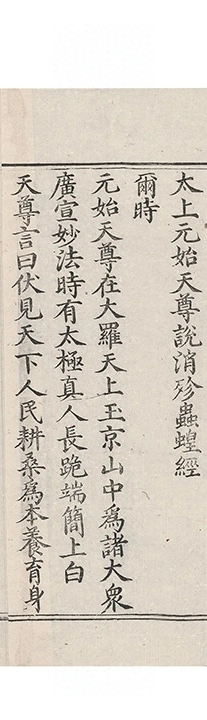 太上元始天尊說消殄蟲蝗經
爾時
元始天尊在大羅天上玉京山中爲諸大衆
廣宣妙法時有太極真人長跪端簡上白
天尊言曰伏見天下人民耕桑爲本養育身